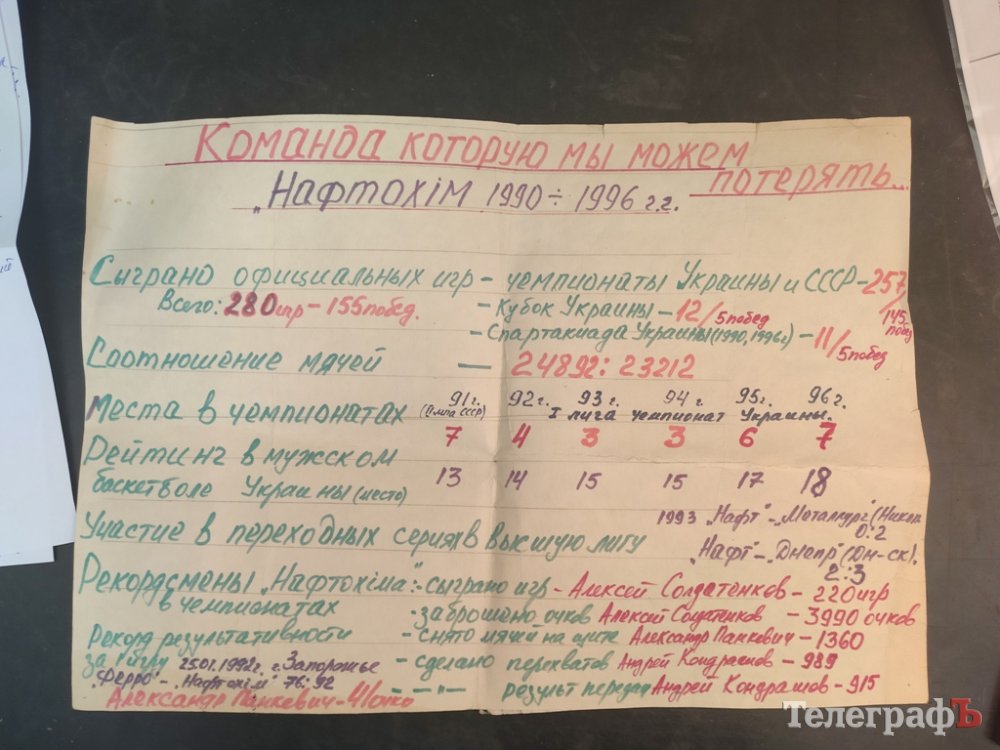 Команда которую мы можем
потерять...
„Нафтохім 1990 ÷ 1996 г.г.
Сыграно официальных игр – чемпионаты Украины и СССР – 257/145 побед
Всего: 280 игр – 155 побед. – Кубок Украины – 12/5 побед
– Спартакиада Украины (1990, 1996г) – 11/5 побед
Соотношение мячей — 24892 : 23212
Места в чемпионатах 91г. 92г. 93г. 94г. 95г. 96г.
СССР) I лига чемпионат Украины.
7 4 3 3 6 7
Рейтинг в мужском
баскетболе Украины (место) 13 14 15 15 17 18
1993 „Нафт" – „Металлург"
Участие в переходных сериях в высшую лигу 0:2
„Нафт" – „Днепр" (Дн-ск).
2:3
Рекордсмены „Нафтохіма": – сыграно игр – Алексей Солдатенков – 220 игр
в чемпионатах – заброшено очков Алексей Солдатенков – 3990 очков
Рекорд результативности – снято мячей на щите Александр Панкевич – 1360
за игру 25.01.1992г. г. Запорожье – сделано перехватов Андрей Кондрашов – 989
„Ферро" – „Нафтохім" 76:92
Александр Панкевич – 41 очко – „ – „ – результ передач Андрей Кондрашов – 915
ТелеграфЪ